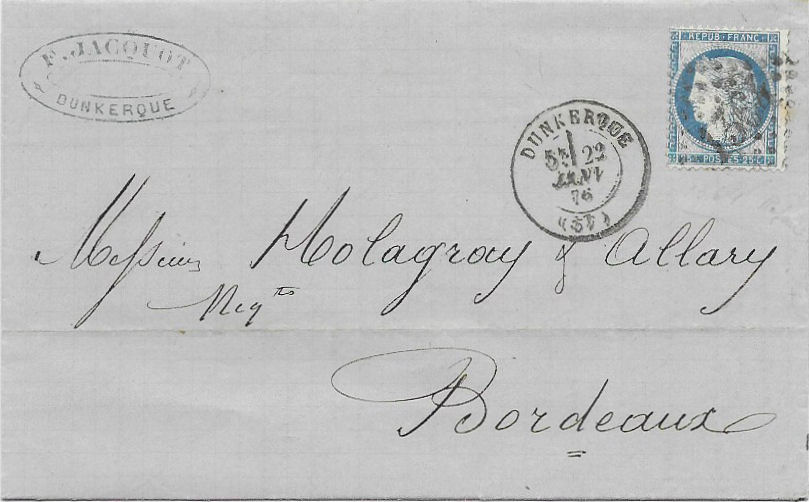 F. JACQUOT
DUNKERQUE
REPUB. FRANC.
25 C. POSTES 25 C.
DUNKERQUE
5E 22
JANV
76
Messieurs Molagray & Allary
Negts
Bordeaux